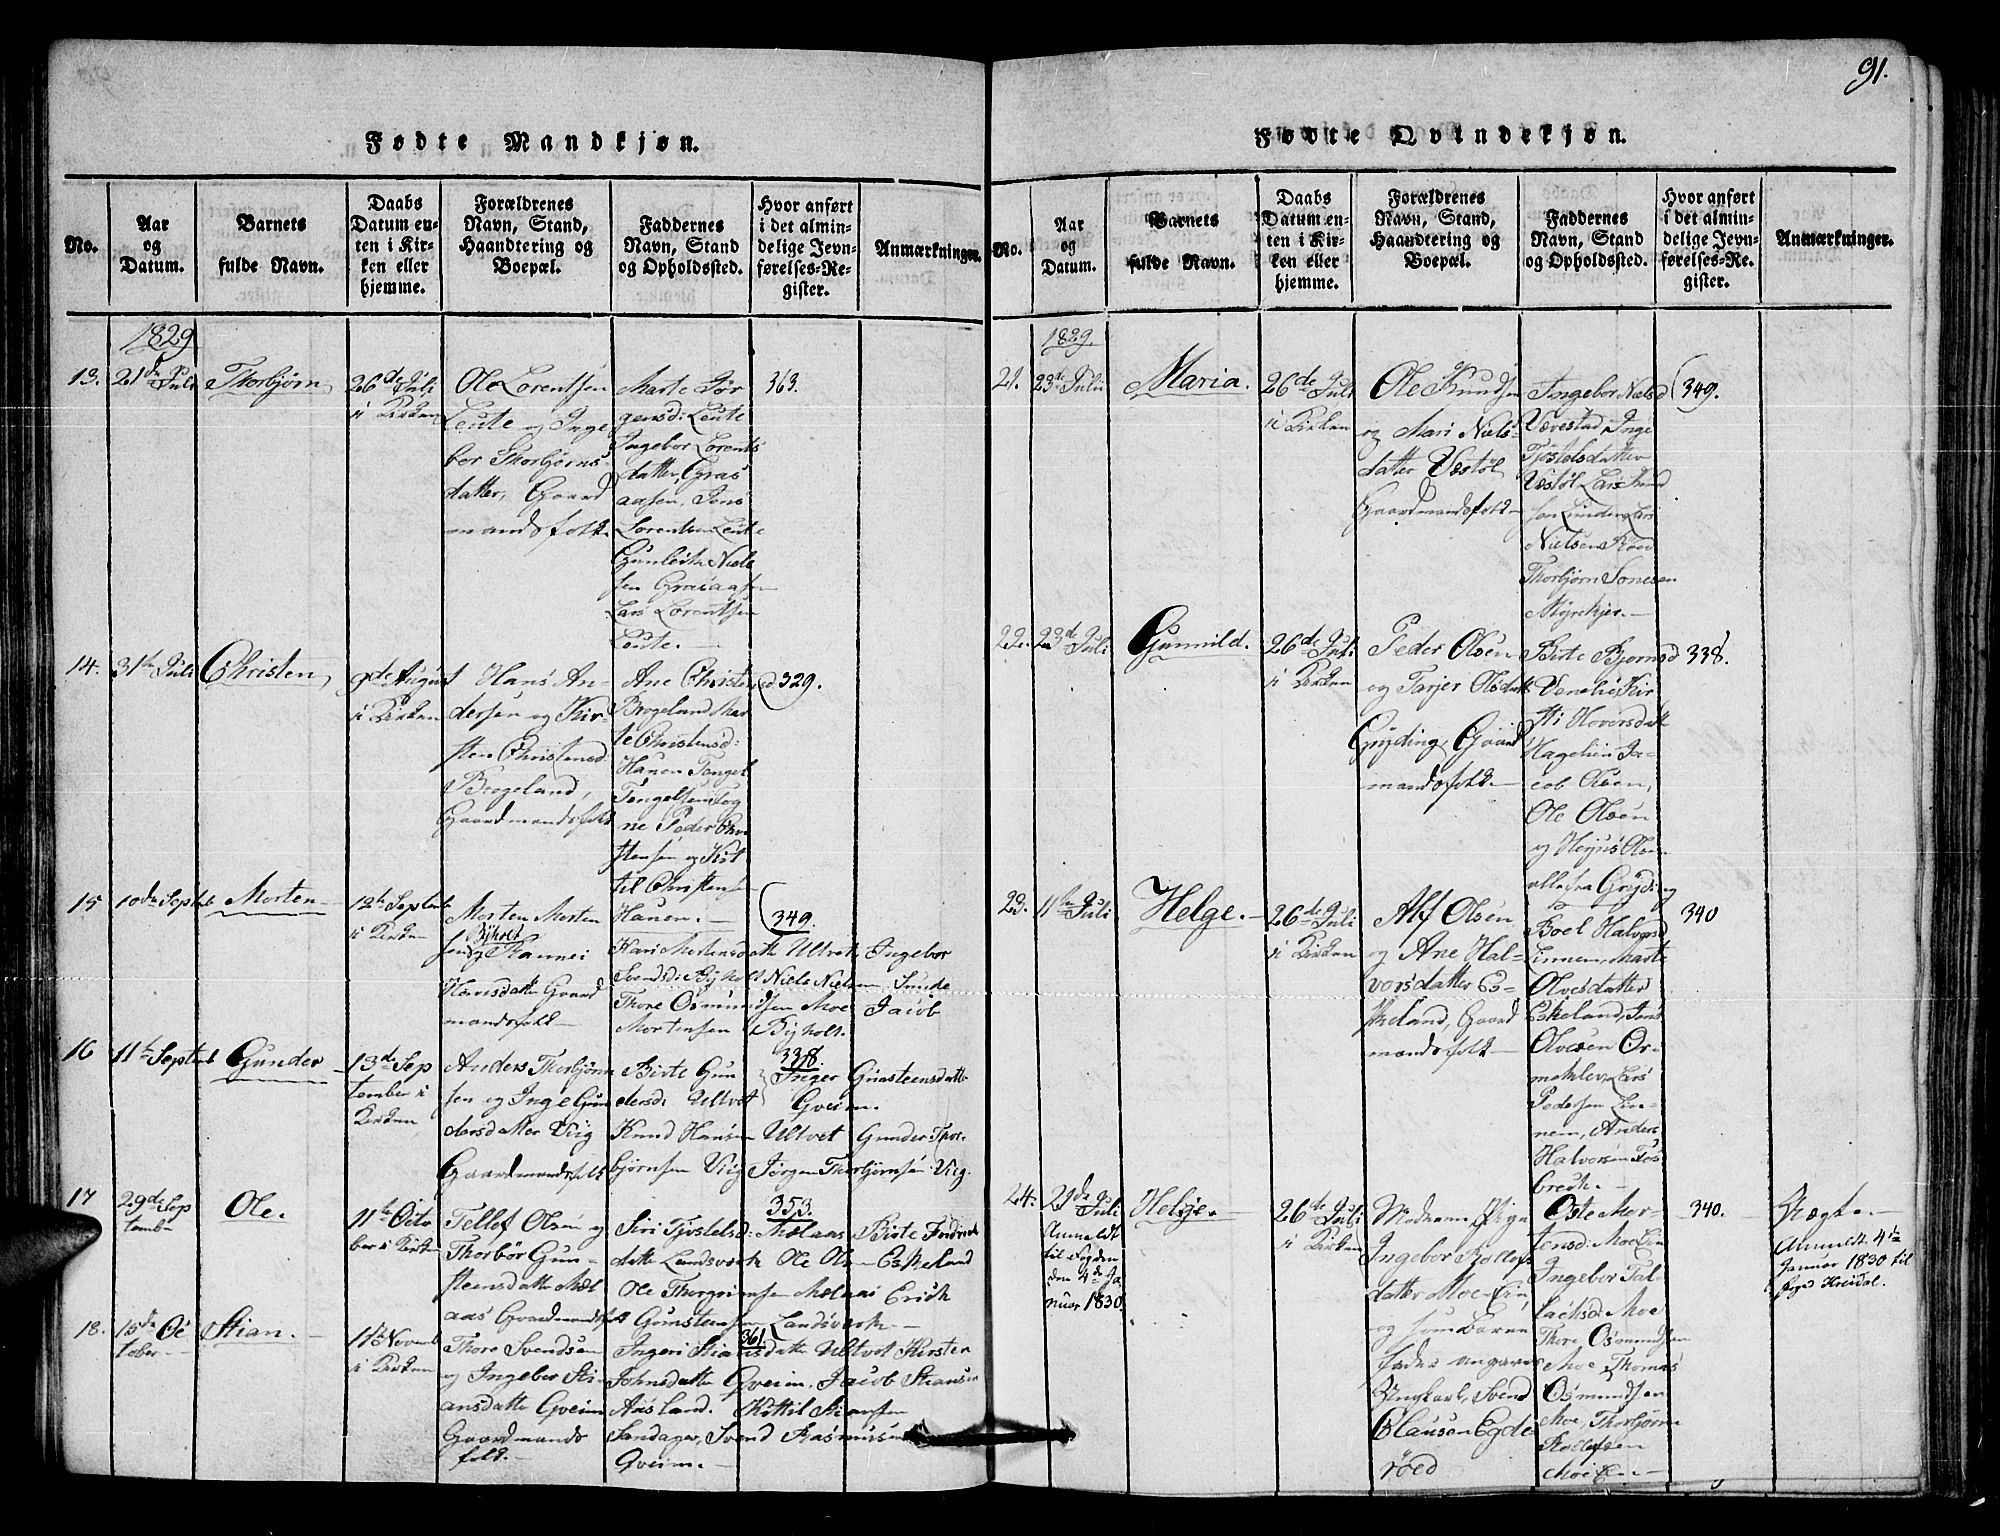 91.
Fødte Mandkjøn.
No.
Aar
og
Datum.
Barnets
fulde Navn.
Daabs
Datum en-
ten i Kir-
ken eller
hjemme.
Forældrenes
Navn, Stand,
Haandtering og
Boepæl.
Faddernes
Navn, Stand
og Opholdssted.
Hvor anført
i det almin-
delige Jevn-
førelses-Re-
gister.
Anmærkninger.
1829
13.
21de Juli
Thorbjørn
26de Juli
i Kirken
Ole Lorentsen
Leute og Inge
bor Thorbjørns-
datter, Gaard
mandsfolk
Marte Jør
gensd: Leute
Ingebor Lorents
datter, Gras
aasen, Jens
Lorentsen Leute
Gunleik Niels
sen Grasaasen
Lars Lorentsen
Leute.
363.
14.
31te Juli
Christen
9de August
i Kirken
Hans An-
dersen og Kir-
sten Christensd
Brogeland,
Gaardmandsfolk
Ane Christensd
Brogeland Mar
te Christensd:
Hauen Tengel
Tengelsen Tog
ne Peder Chri
stensen og Kit
til Christensen
Hauen.
329.
15
10de Septb
Morten
12te Septemb
i Kirken
Morten Morten
sen Byholt
og Rannei
Hansdatte Gaard
mandsfolk
Kari Mortensdatte Ultvet, Ingebor
Svendsd: Byholt Niels Nielsen, Sunde
Thore Osmundsen Moe Jacob
Mortensen Byholt.
349.
16
11te Septemb
Gunder
13de Sep
tember i
Kirken
Anders Thorbjørn
sen og Inge Gun
dersdatter Viig
Gaardmandsfolk
Birte Gun
dersd: Ultvet
Inger Gunsteensdatte
Gveim.
Knud Hansen Ultvet Gunder Thor-
bjørnsen Viig Jørgen Thorbjørnsen Viig.
338.
17
29de Sep
temb
Ole.
11te Octo
ber i Kirken
Tellef Olsen og
Thorbør Gun-
steensdatte Mæl
aas Gaardmandsfolk
Siri Tjostelsd: Mælaas Birte Fredrik
datte Landsverk Ole Olsen Eskeland
Ole Thorgrimsen Mælaas Erich
Gunsteensen Landsverk
353.
18.
15de Oc
tober
Stian.
1ste Novemb
i Kirken
Thore Svendsen
og Ingeber Sti-
ansdatte Gveim
Gaardmands
folk.
Ingeri Stiansdatte Ultvet Kirsten
Johnsdatte Gveim, Jacob Stiansen
Aasland. Kittil Stiansen
Sandager, Svend Rasmusen
Gveim.
361.
Fødte Qvindekjøn.
No.
Aar
og
Datum.
Barnets
fulde Navn.
Daabs
Datum en-
ten i Kir-
ken eller
hjemme.
Forældrenes
Navn, Stand,
Haandtering og
Boepæl.
Faddernes
Navn, Stand
og Opholdssted.
Hvor anført
i det almin-
delige Jevn-
førelses-Re-
gister.
Anmærkninger.
1829.
21.
23de Julii
Maria.
26de Juli
i Kirken
Ole Knudsen
og Mari Niels-
datter Vestøl
Gaardmandsfolk
Ingebor Nielsd
Vævestad, Inge
Tjostelsdatter
Vestøl Lars Knud
sen Linder, Lars
Nielsen Røed
Thorbjørn Sonesen
Myrekjer.
349.
22.
23de Juli
Gunnild.
26de Juli
i Kirken
Peder Olsen
og Tarjer Olsdatt
Gryding, Gaard
mandsfolk
Birte Bjornsd
Venelie, Kir
sti Hoversdatt
Hagelien Ja-
cob Olsen,
Ole Olsen
og Olsen
alle fra Gryding
338.
23.
11te Juli
Helge.
26de Juli
i Kirken
Alf Olsen
og Ane Hal-
vorsdatter Es-
keland, Gaard
mandsfolk
Boel Halvorsd
Linnem, Marte
Olvesdatter
Eskeland, Jens
Olvesen Or
mekler, Lars
Pedersen Lin-
nem, Anders
Halvorsen Fos
brech.
340
24.
21de Juli
Anmeldt
til Fogden
den 4de Ja
nuar 1830.
Helje.
26de Juli
i Kirken
Madnam Pige
Ingebor Rollefs
datter Moe Ein
og som Barne
fader angaves
Ungkarl, Svend
Clausen Egde
røed
Oste Mor-
tensd: Moe Ein
Ingebor Tal
lachsd: Moe
Thore Osmundsen
Moe, Thomas
Osmundsen
Moe, Thorbjørn
Rollefsen
Moe Ein
340.
Uægte.
Anmeldt 4de
Januar 1830 til
Foged